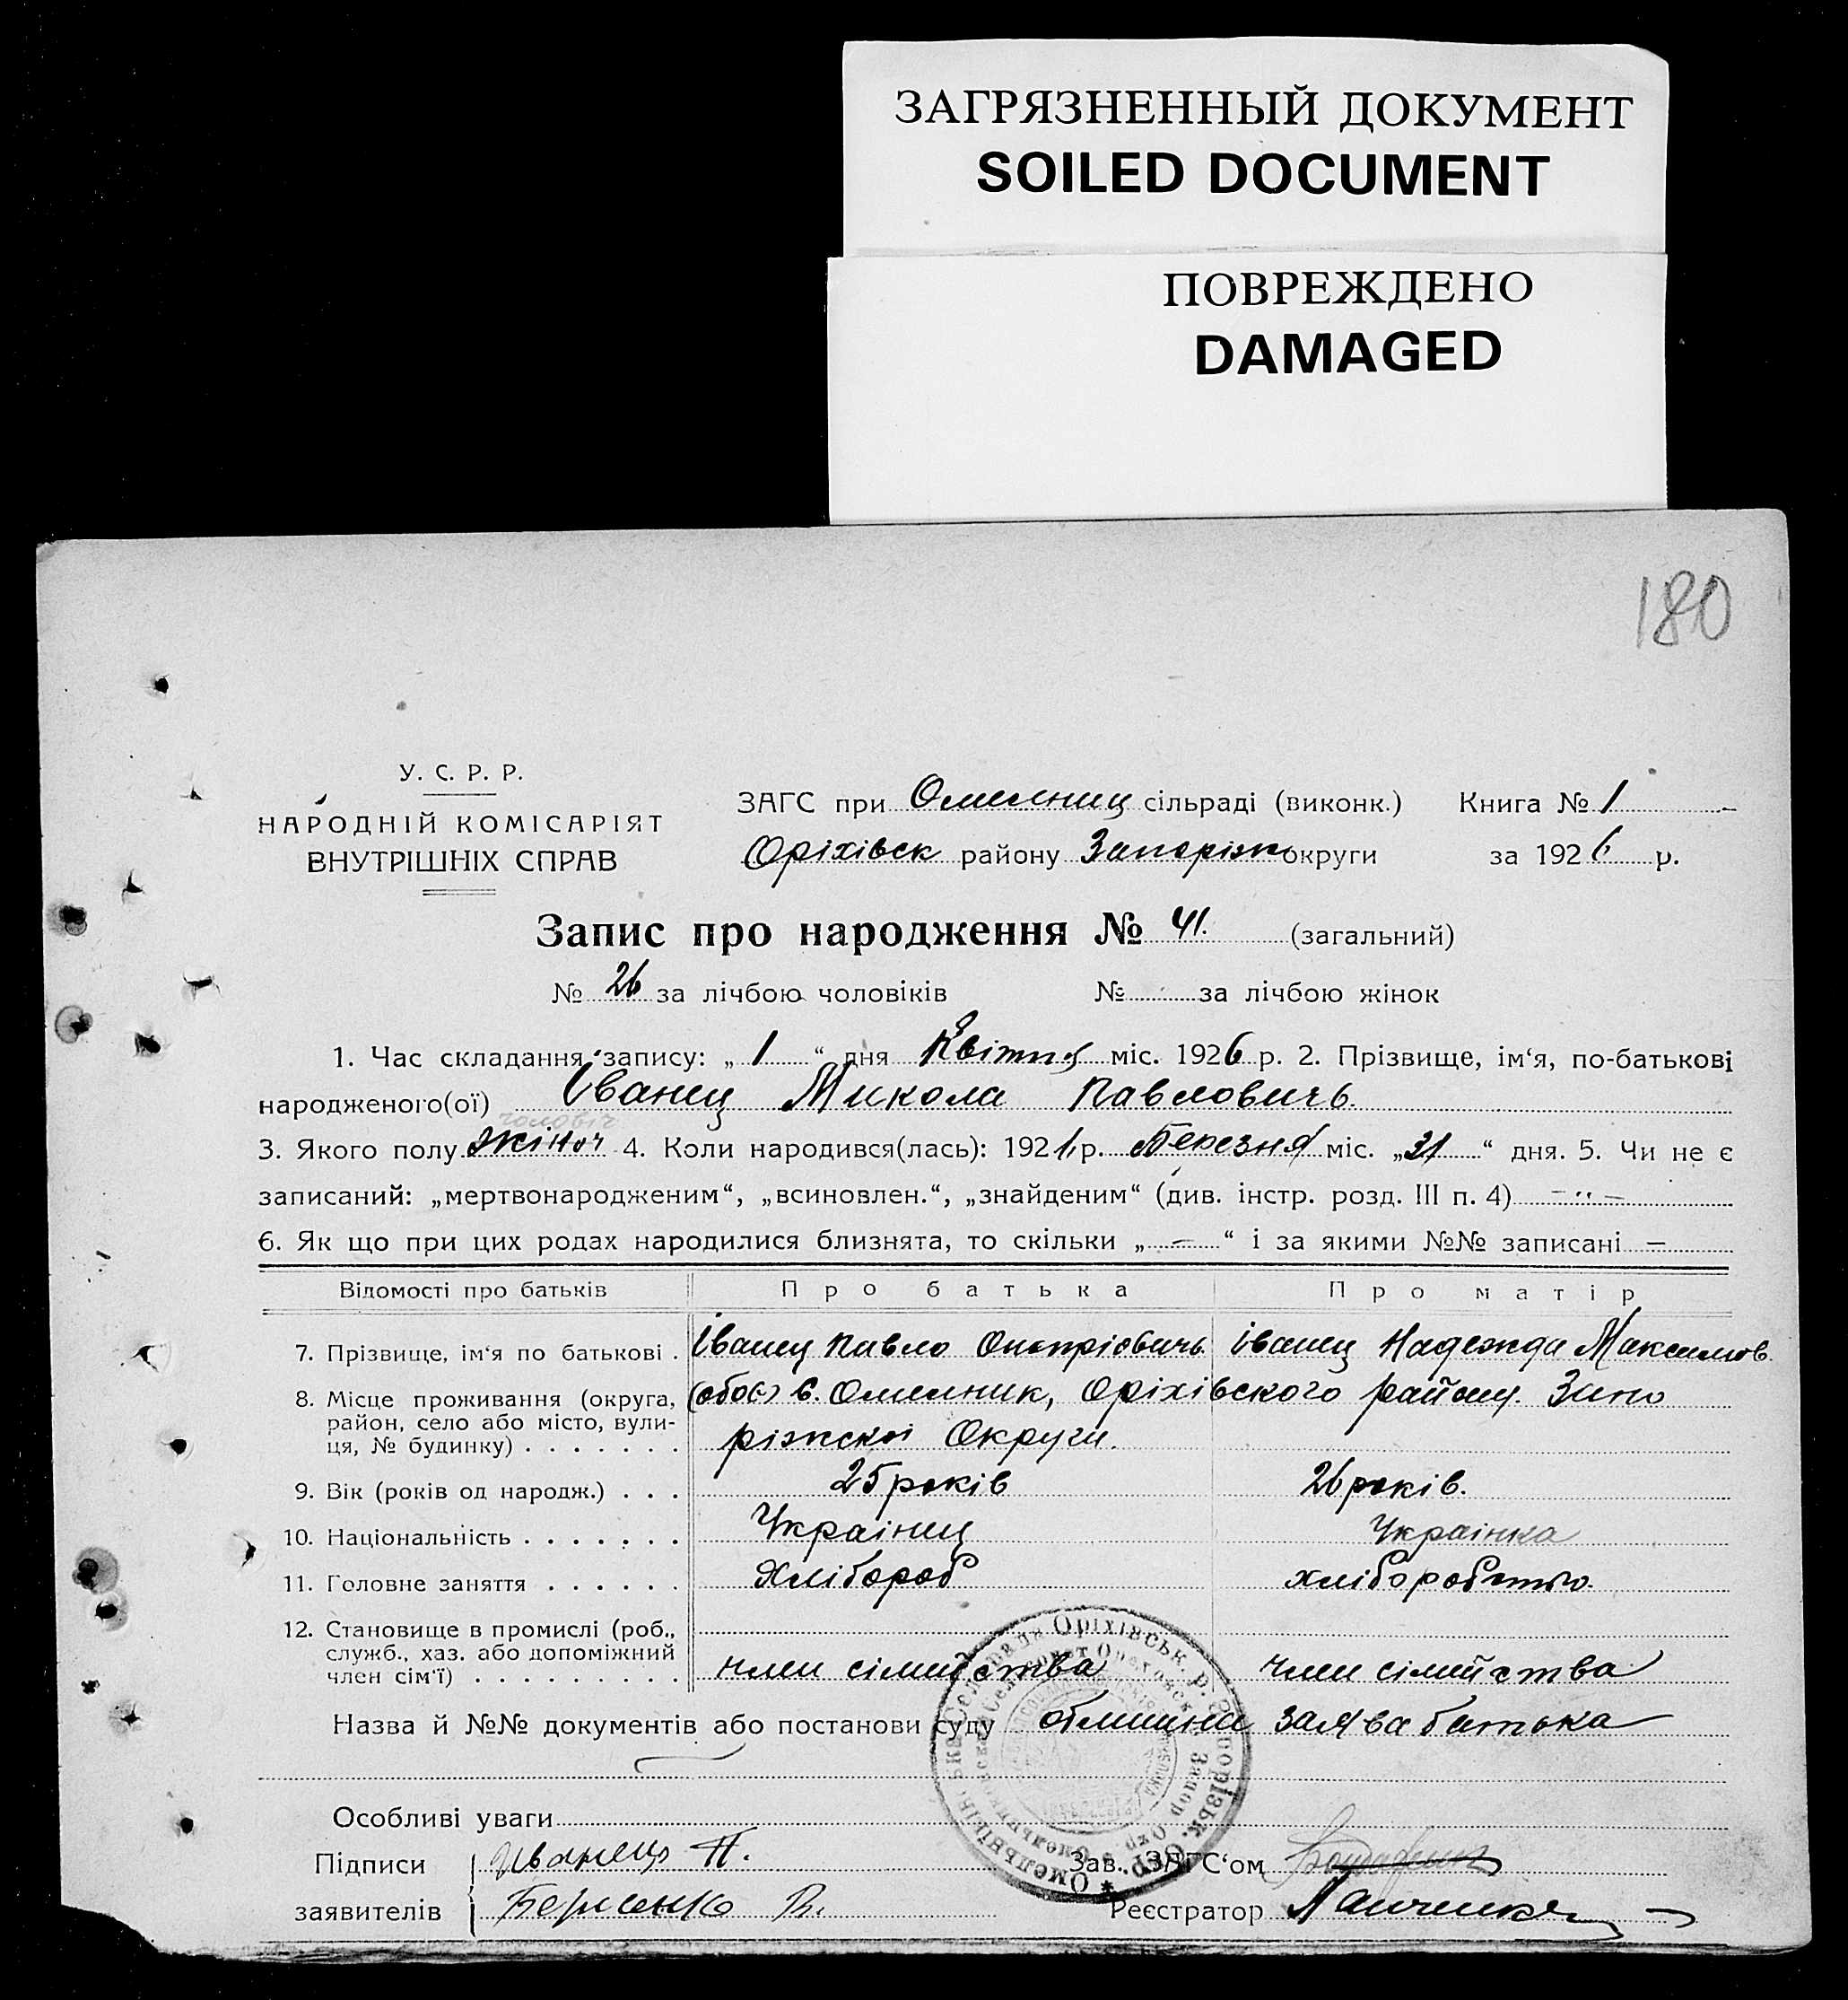 ЗАГРЯЗНЕННЫЙ ДОКУМЕНТ
SOILED DOCUMENT
ПОВРЕЖДЕНО
DAMAGED
180
У. С. Р. Р.
НАРОДНІЙ КОМІСАРІЯТ
ВНУТРІШНІХ СПРАВ
ЗАГС при Омелниц сільраді (виконк.) Книга № 1
Оріхівск району Запоріж округи за 1926 р.
Запис про народження № 41. (загальний)
№ 26 за лічбою чоловіків № за лічбою жінок
1. Час складання запису: „ 1 “ дня Квітня міс. 1926 р. 2. Прізвище, ім‘я, по-батькові
народженого(ої) Іванец Микола Павловичь.
чоловіч
3. Якого полу жіноч 4. Коли народився(лась): 192 р. Березня міс. „31“ дня. 5. Чи не є
записаний: „мертвонародженим“, „всиновлен.“, „знайденим“ (див. інстр. розд. III п. 4) – „ –
6. Як що при цих родах народилися близнята, то скільки „ – “ і за якими №№ записані –
Відомості про батьків Про батька Про матір
7. Прізвище, ім‘я по батькові . Іванец Павло Онопріевичь Іванец Надежда Максимов.
8. Місце проживання (округа, с. Омелник, Оріхівского району. Запо
район, село або місто, вули-
ця, № будинку) . . . . . . . ріжскоі Округи.
9. Вік (років од народж.) . . . 25 років 26 років.
10. Національність . . . . . . . Украінец Украінка
11. Головне заняття . . . . . . Хлібороб хліборобство.
12. Становище в промислі (роб.,
служб., хаз. або допоміжний
член сім‘ї) . . . . . . . . . член сімийства член сімейства
Назва й №№ документів або постанови суду заява батька
Особливі уваги
Підписи Иванець П. Зав. ЗАГС‘ом
заявителів В. Реєстратор Панченко